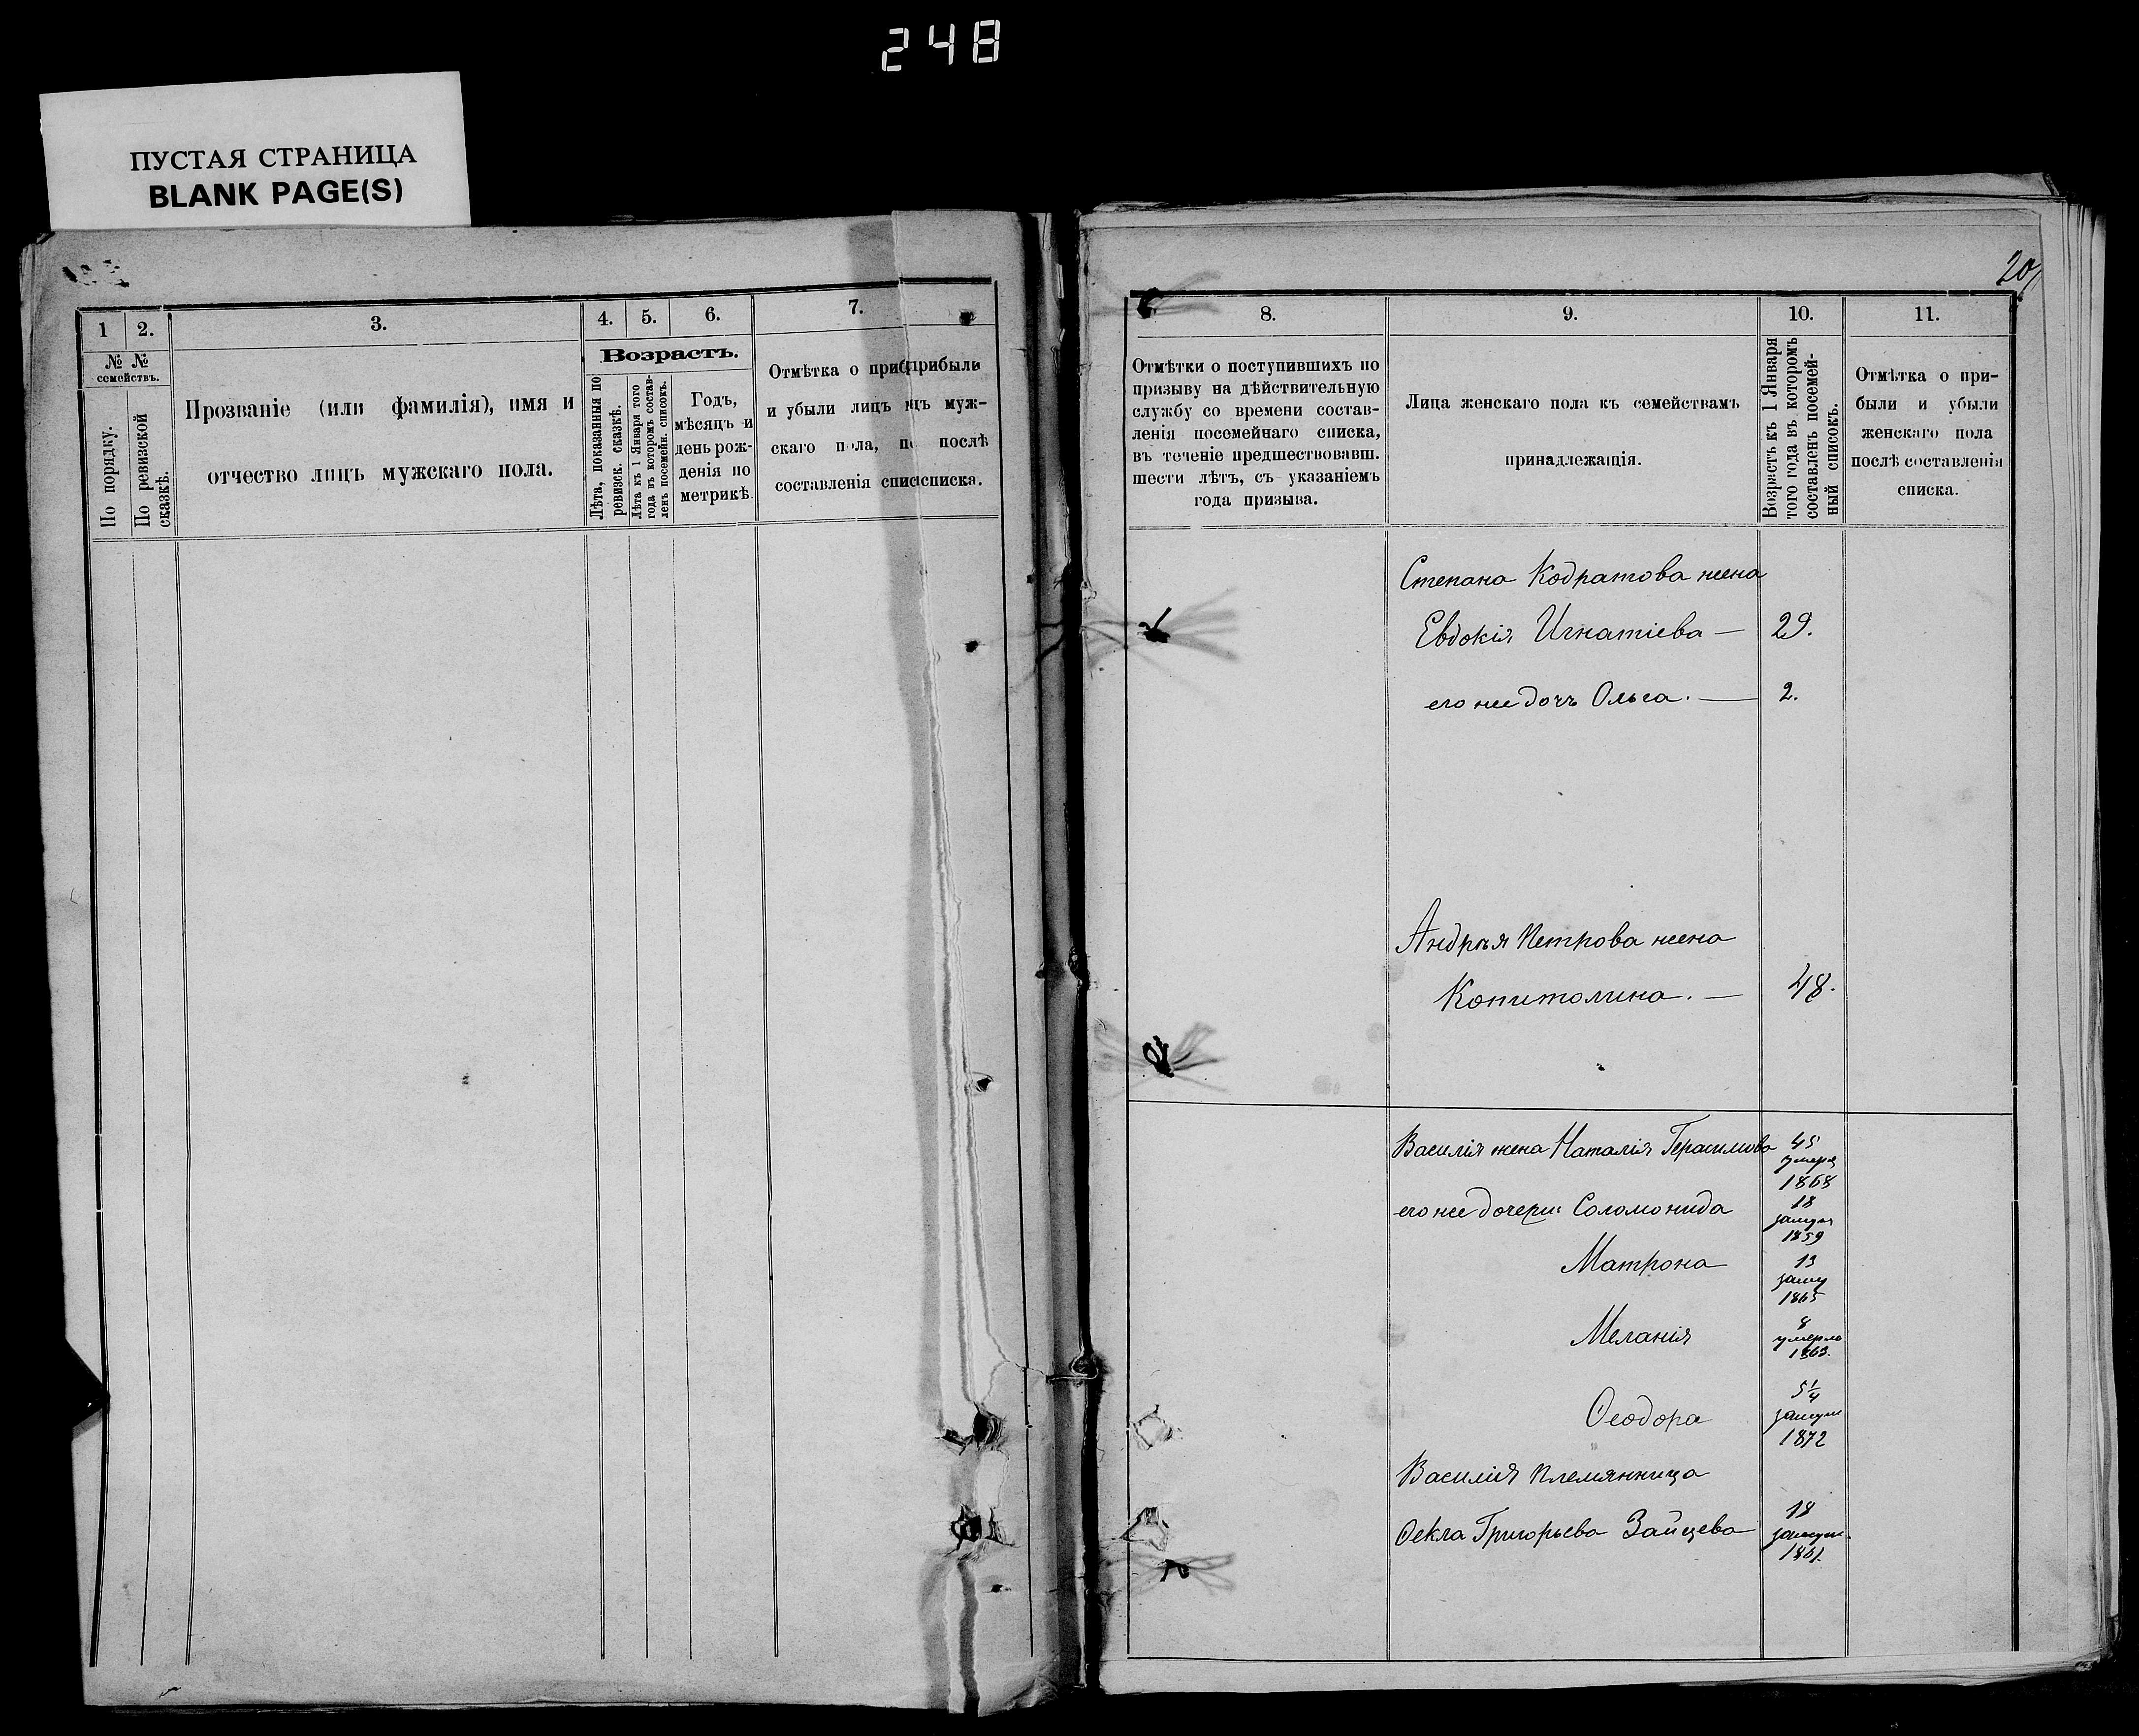 248
ПУСТАЯ СТРАНИЦА
BLANK PAGE(S)
1
2.
3.
4.
5.
6.
7.
№ № семействъ.
По порядку.
По ревизской сказкѣ.
Прозваніе (или фамилія), имя и
отчество лицъ мужскаго пола.
Возрастъ.
Лѣта, показанныя по ревизск. сказкѣ.
Лѣта къ 1 Января того года въ которомъ составленъ посемейн. списокъ.
Годъ,
мѣсяцъ и
день рож-
денія по
метрикѣ.
Отмѣтка о прибприбыли
и убыли лицъ ицъ муж-
скаго пола, по послѣ
составленія списсписка.
20
8.
9.
10.
11.
Отмѣтки о поступившихъ по
призыву на дѣйствительную
службу со времени состав-
ленія посемейнаго списка,
въ теченіе предшествовавш.
шести лѣтъ, съ указаніемъ
года призыва.
Лица женскаго пола къ семействамъ
принадлежащія.
Возрастъ къ 1 Января
того года въ которомъ
составленъ посемей-
ный списокъ.
Отмѣтка о при-
были и убыли
женскаго пола
послѣ составленія
списка.
Степана Кодратова жена
Евдокія Игнатіева — 29.
его же дочь Ольга. — 2.
Андрея Петрова жена
Копитолина. — 48.
Василія жена Наталія Герасимова 45
умерла
1868
его же дочери: Соломонида 18
замуж
1859
Матрона 13
заму
1865
Меланія 8
умерла
1863.
Ѳеодора 5 1/4
замуж
1872
Василія племянница
Ѳекла Григорьева Зайцева 18
замуж.
1861.